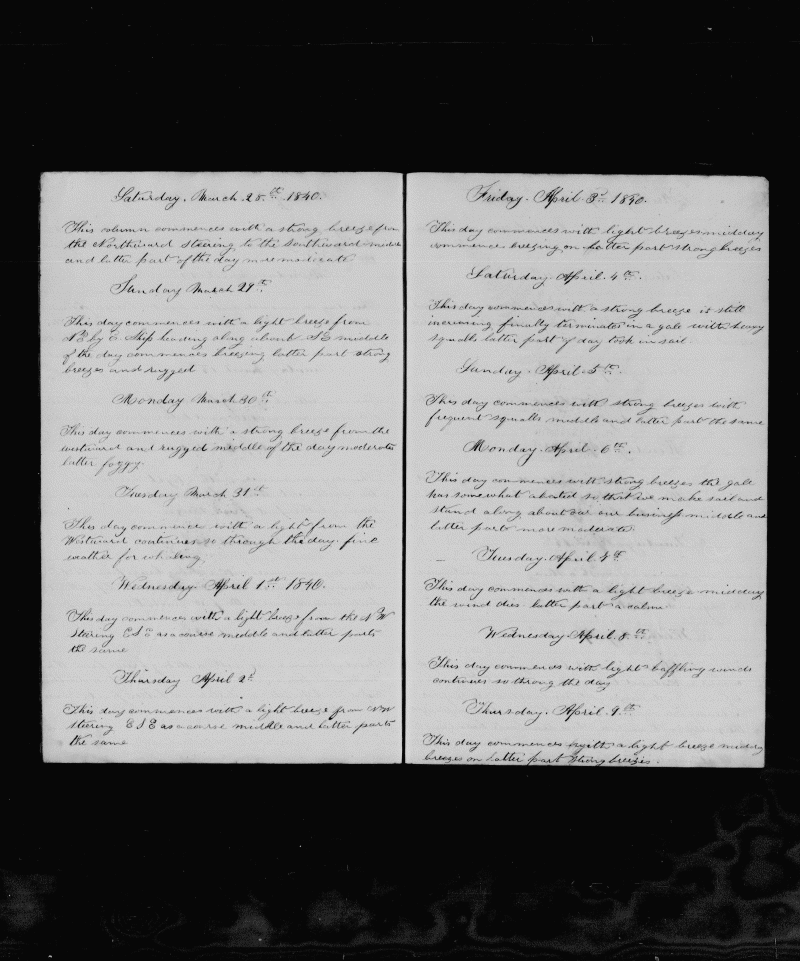 Saturday. March 28.th 1840.
This column commences with a strong breeze from
the Northward steering to the Southward middle
and latter part of the day more moderate
Sunday March 29th
This day commences with a light breeze from
N E by E. Ship heading along about S E middle
of the day commences breezing latter part strong
breezes and rugged
Monday March 30th
This day commences with a strong breeze from the
westward and rugged middle of the day moderate
latter foggy
Tuesday March 31st
This day commence with a light from the
Westward continues so through the day. fine
weather for whaling
Wednesday April 1st 1840.
This day commences with a light breeze from the N W
Steering E S E as a course middle and latter parts
the same
Thursday April 2d
This day commences with a light breeze from N W
steering E S E as a course middle and latter parts
the same
Friday. April 3d 1840.
This day commences with light breezes midday
commence breezing on latter part strong breezes
Saturday. April. 4th.
This day commences with a strong breeze it still
increasing finally terminates in a gale with heavy
squalls latter part of day took in sail
Sunday. April. 5th.
This day commences with strong breezes with
frequent squalls middle and latter part the same
Monday. April. 6th.
This day commences with strong breezes the gale
has somewhat abated so that we make sail and
stand along about our business middle and
latter parts more moderate
Tuesday. April. 7th
This day commences with a light breeze midday
the wind dies latter part a calm
Wednesday. April. 8.th
This day commences with light baffling winds
continues so throug the day
Thursday. April. 9.th
This day commences with a light breeze midday
breezes on latter part strong breezes.